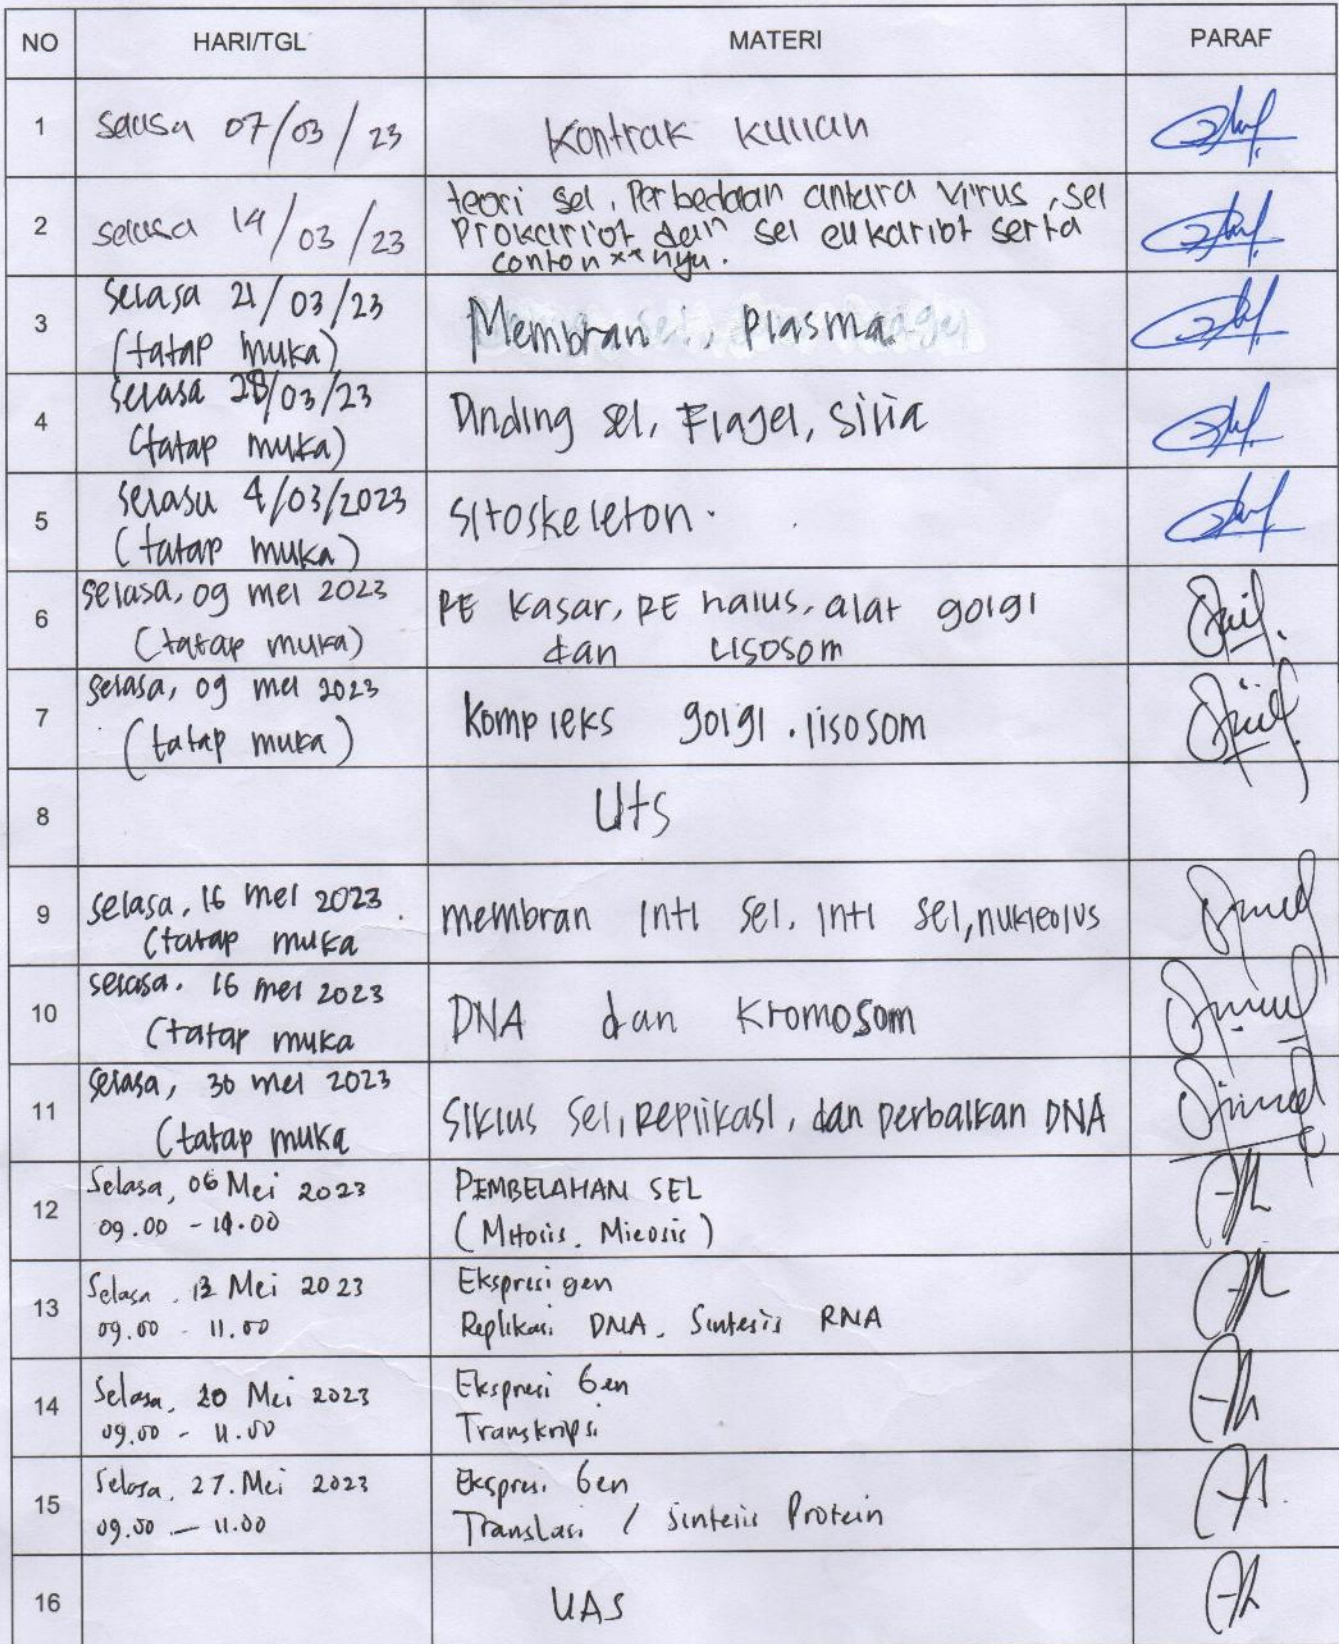 NO HARI/TGL MATERI PARAF
1 Selasa 07/03/23 Kontrak Kuliah
2 selasa 14/03/23 teori sel, Perbedaan antara virus, sel
Prokariot dan sel eukariot serta
contoh**nya.
3 Selasa 21/03/23
(tatap muka) Membran Plasma
4 Selasa 28/03/23
(tatap muka) Dinding sel, Flagel, Silia
5 Selasa 4/03/2023
(tatap muka) Sitoskeleton.
6 Selasa, 09 mei 2023 RE Kasar, RE halus, alat golgi
(tatap muka) dan Lisosom
7 Selasa, 09 mei 2023
(tatap muka) Kompleks golgi. lisosom
8 Uts
9 Selasa, 16 mei 2023. membran inti sel, inti sel, nukleolus
(tatap muka
10 selasa. 16 mei 2023 DNA dan Kromosom
(tatap muka
11 Selasa, 30 mei 2023
(tatap muka Siklus Sel, Replikasi, dan perbaikan DNA
12 Selasa, 06 Mei 2023 PEMBELAHAN SEL
09.00 - 11.00 (Mitosis, Mieosis)
13 Selasa, 13 Mei 2023 Ekspresi gen
09.00 - 11.00 Replikasi DNA, Sintesis RNA
14 Selasa, 20 Mei 2023 Ekspresi Gen
09.00 - 11.00 Transkripsi
15 Selasa, 27. Mei 2023 Ekspresi Gen
09.00 - 11.00 Translasi / Sintesis Protein
16 UAS